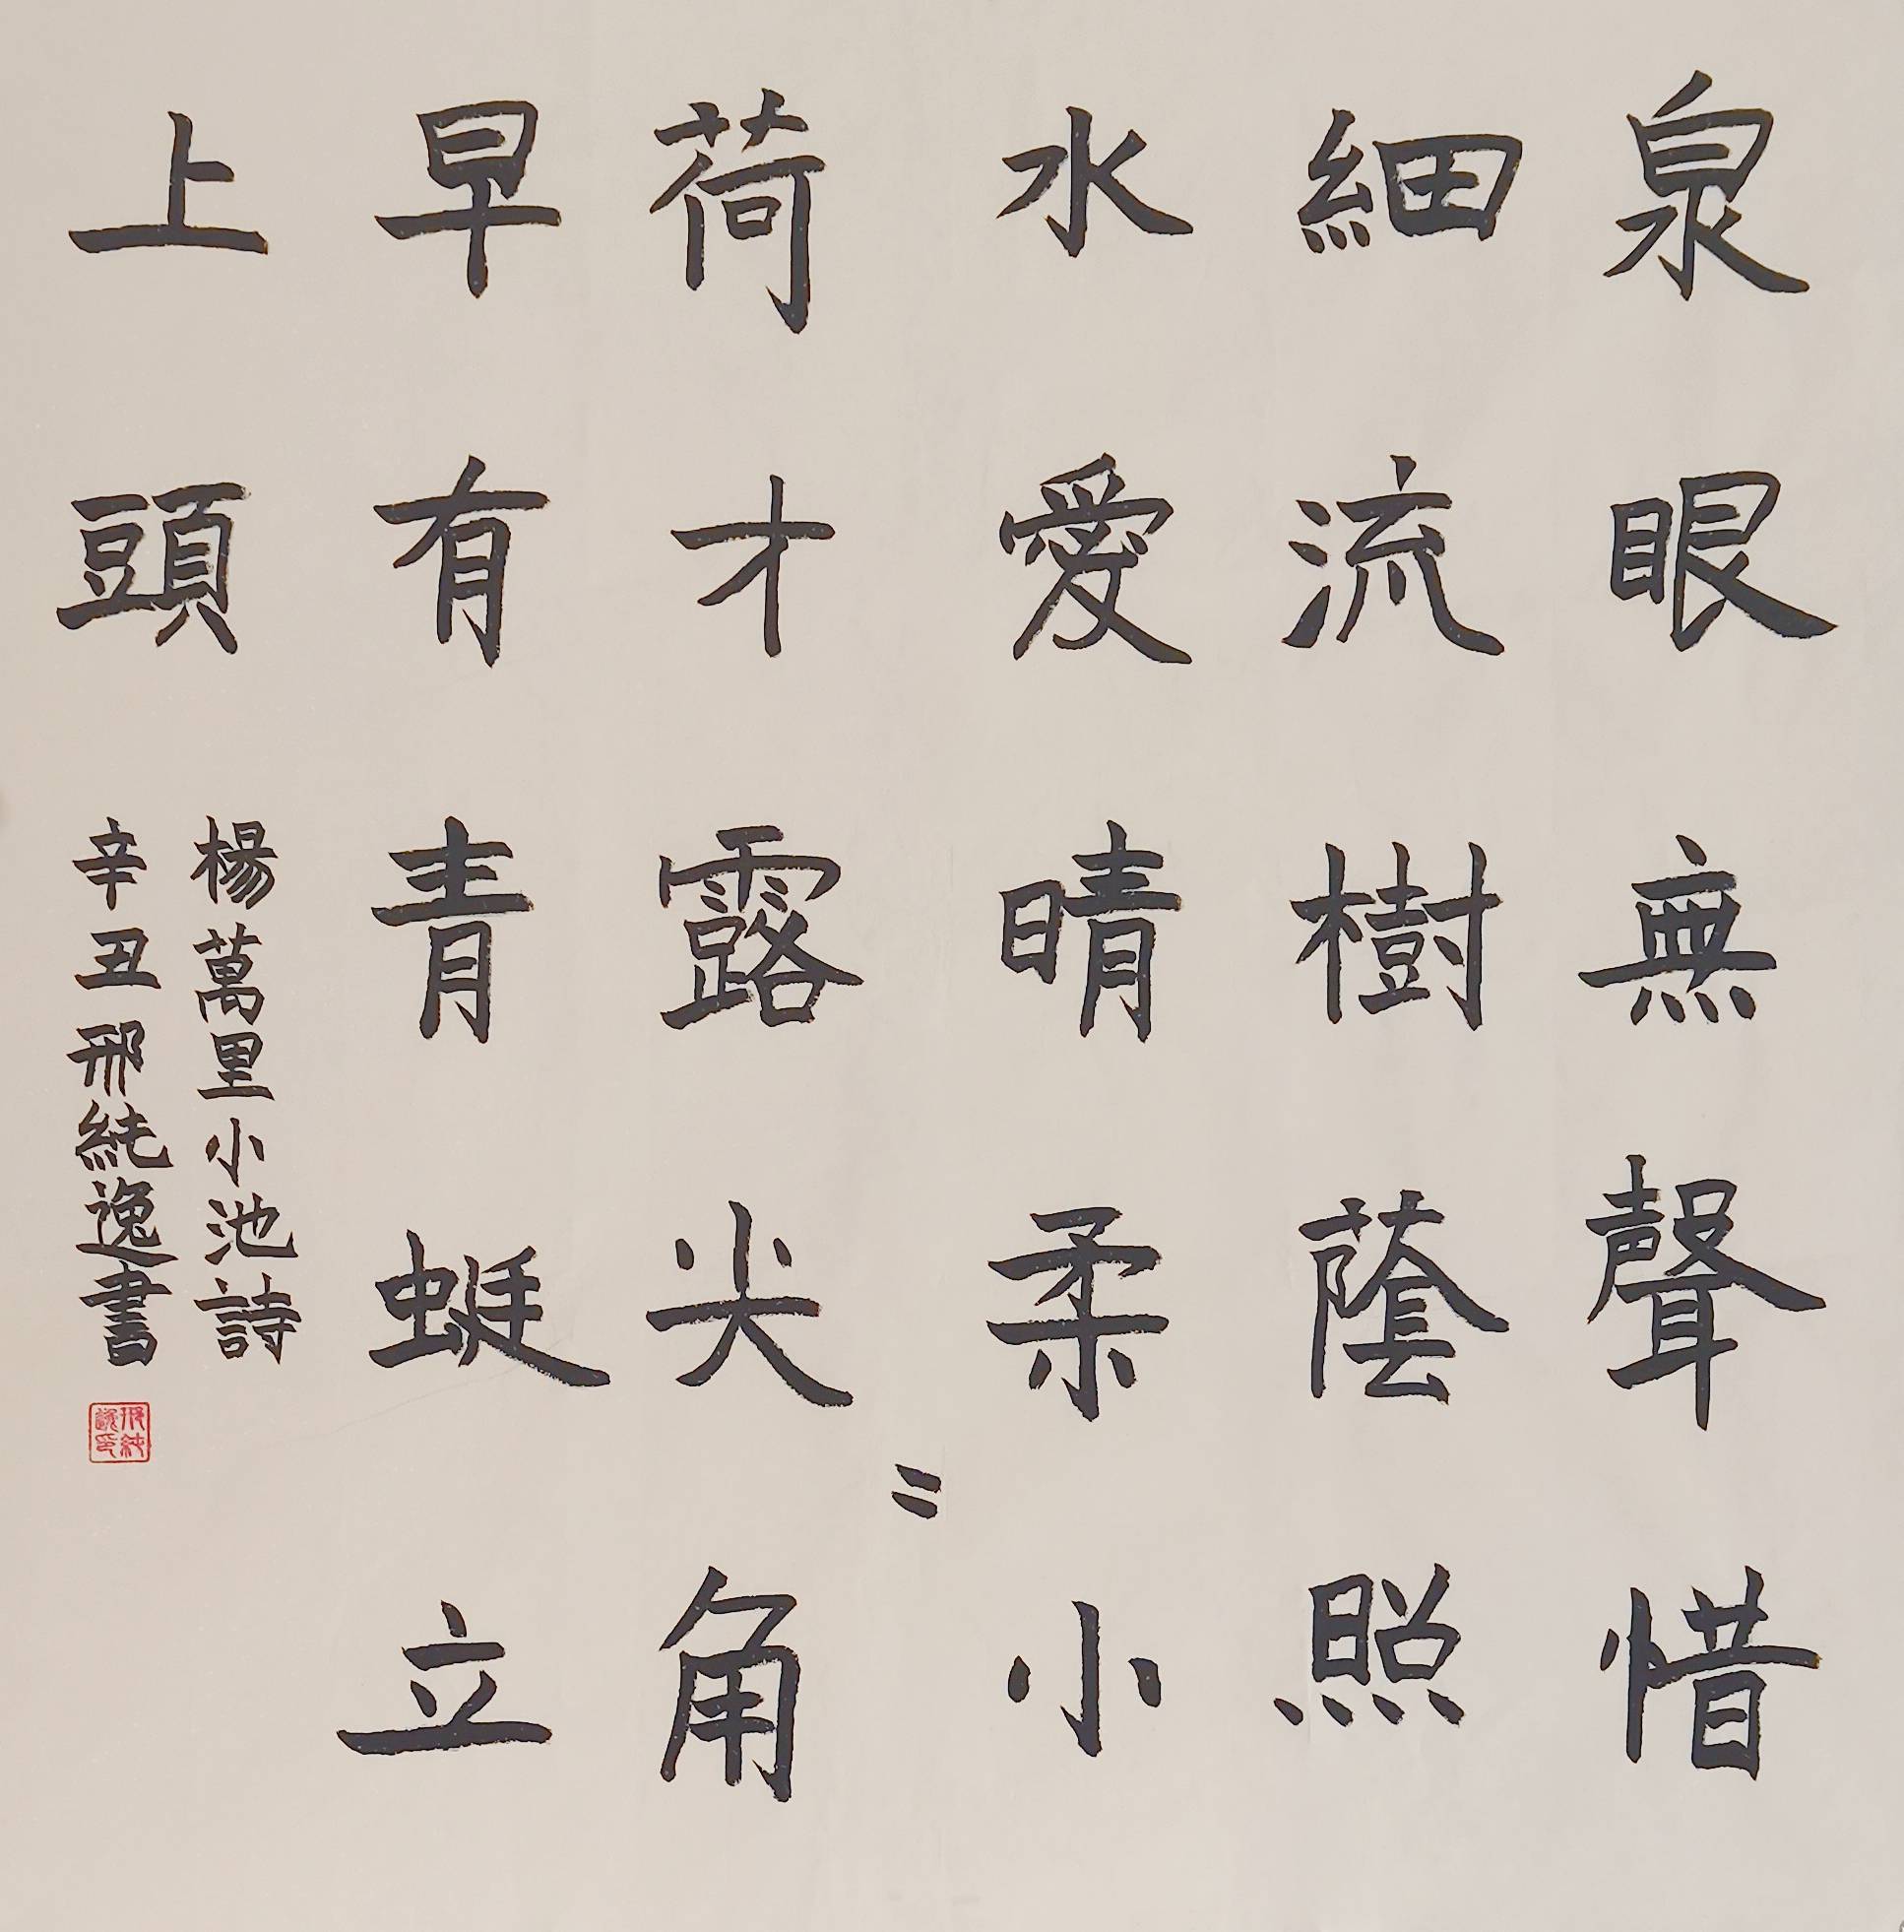 泉眼無聲惜
細流樹蔭照
水愛晴柔小
荷才露尖〻角
早有青蜓立
上頭
楊萬里小池詩
辛丑邢純逸書
邢純逸印